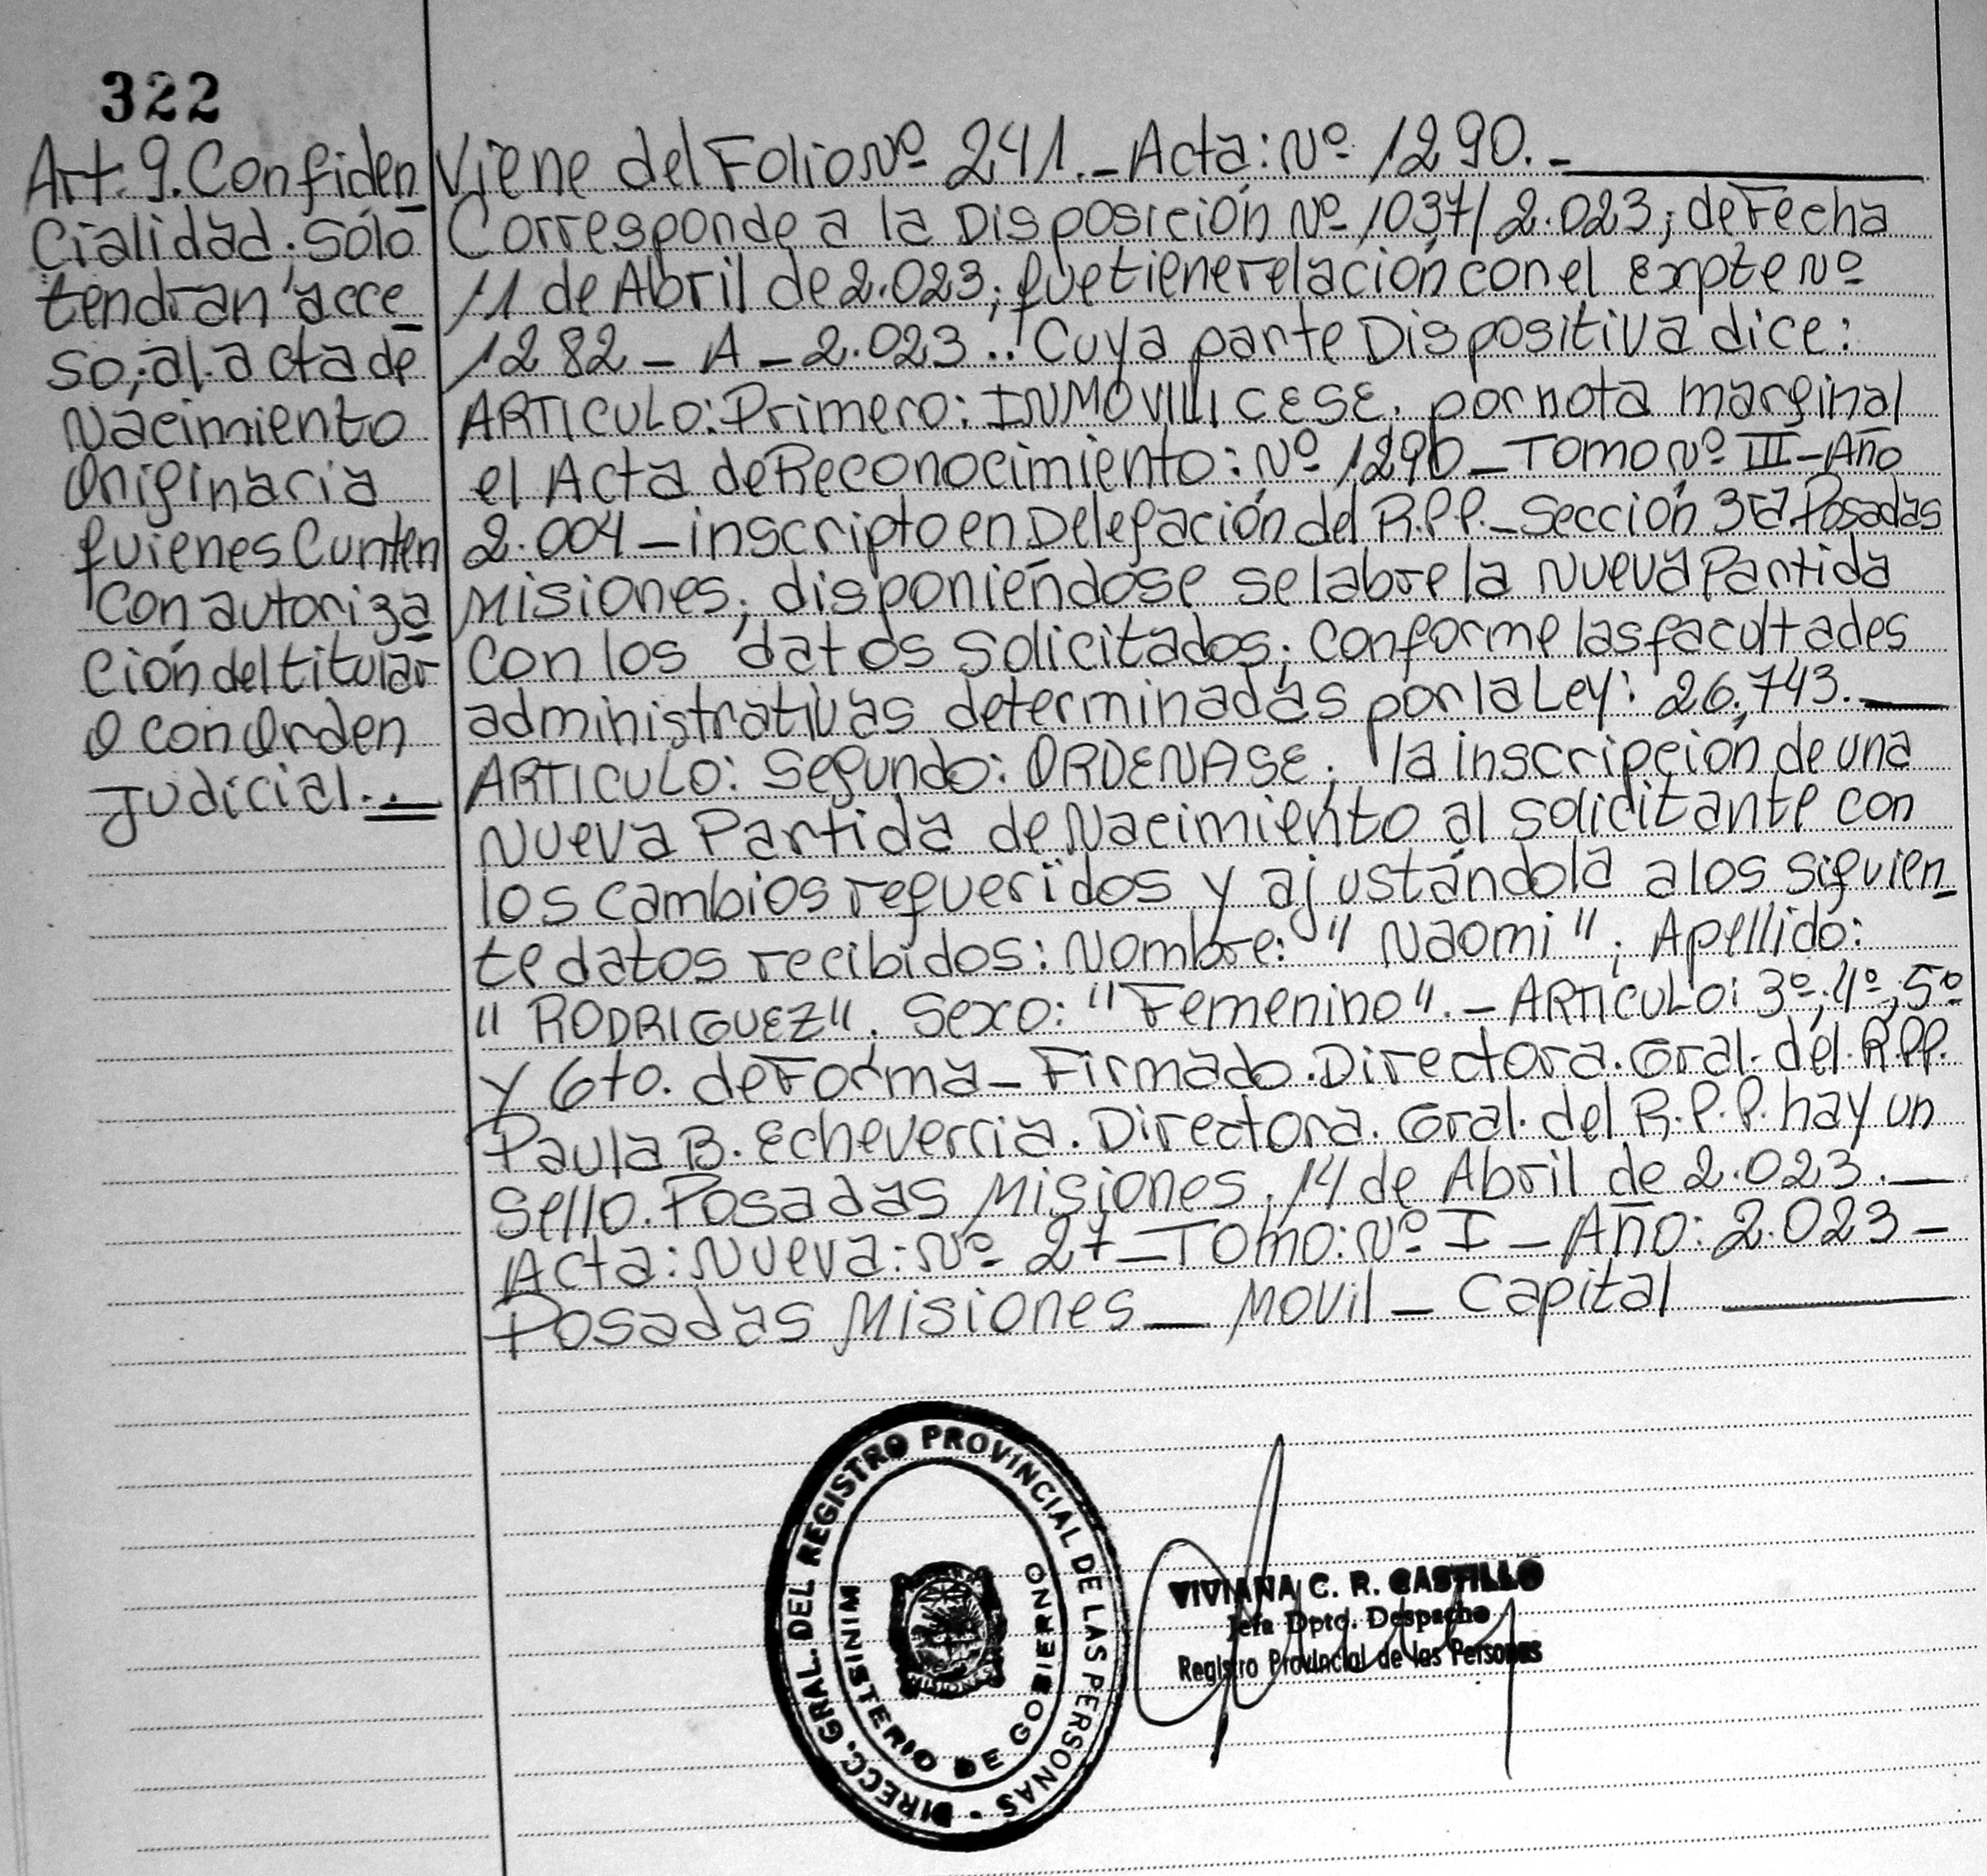 322
Art. 9. Confiden
cialidad; sólo
tendran acce
so, al acta de
Nacimiento
Originaria
quienes Cunten
Con autoriza
ción del titular
o con orden
Judicial.-
Viene del Folio Nº 241.- Acta: Nº 1290.-
Corresponde a la Disposición Nº 1037/2.023; de Fecha
11 de Abril de 2.023; que tiene relación con el Expte Nº
1282 - A - 2.023.. Cuya parte Dispositiva dice:
ARTICULO: Primero: INMOVILICESE, por nota marginal
el Acta de Reconocimiento: Nº 1290 - Tomo Nº III - Año
2.004 - inscripto en Delegación del R.P.P. - Sección 3ra. Posadas
Misiones; disponiéndose se labre la Nueva Partida
Con los datos solicitados; conforme las facultades
administrativas determinadas por la Ley: 26.743.-
ARTICULO: Segundo: ORDENASE; la inscripción de una
Nueva Partida de Nacimiento al solicitante con
los cambios requeridos y ajustándola a los siguien
te datos recibidos: Nombre: "Naomi"; Apellido:
"RODRIGUEZ". Sexo: "Femenino". - ARTICULO: 3º; 4º; 5º
y 6to. de Forma - Firmado. Directora. Gral. del. R.P.P.
Paula B. Echeverria. Directora. Gral. del R.P.P. hay un
Sello. Posadas Misiones, 14 de Abril de 2.023.-
Acta: Nueva: Nº 27 - Tomo: Nº I - Año: 2.023 -
Posadas Misiones - Movil - Capital
DIRECC. GRAL. DEL REGISTRO PROVINCIAL DE LAS PERSONAS -
MINISTERIO DE GOBIERNO
MISIONES
VIVIANA C. R. CASTILLO
Jefa Dpto. Despacho
Registro Provincial de las Personas